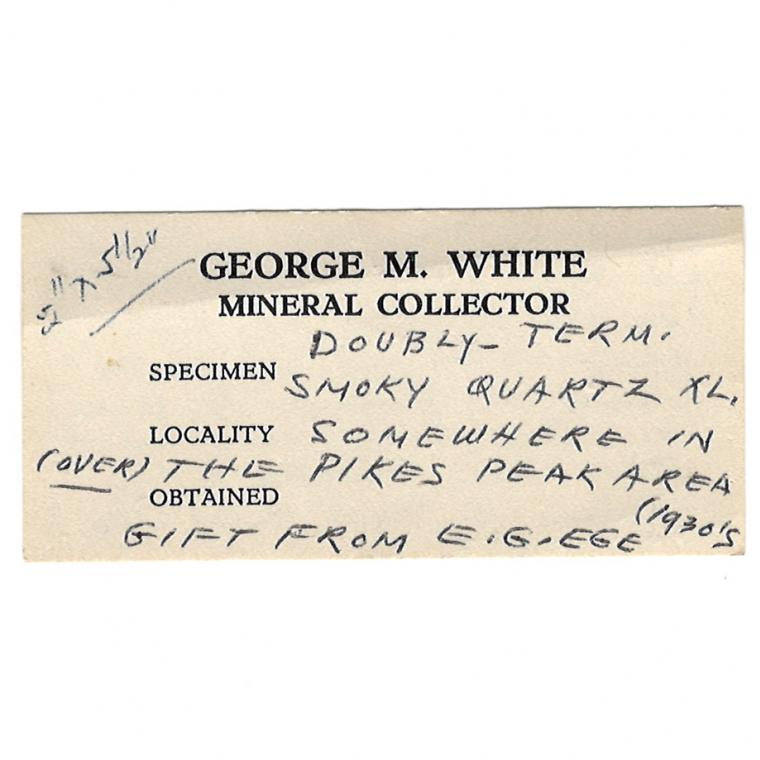 5" x 5 1/2"
GEORGE M. WHITE
MINERAL COLLECTOR
DOUBLY- TERM.
SPECIMEN SMOKY QUARTZ XL.
LOCALITY SOMEWHERE IN
(OVER) THE PIKES PEAK AREA
OBTAINED (1930'S
GIFT FROM E.G.EGE